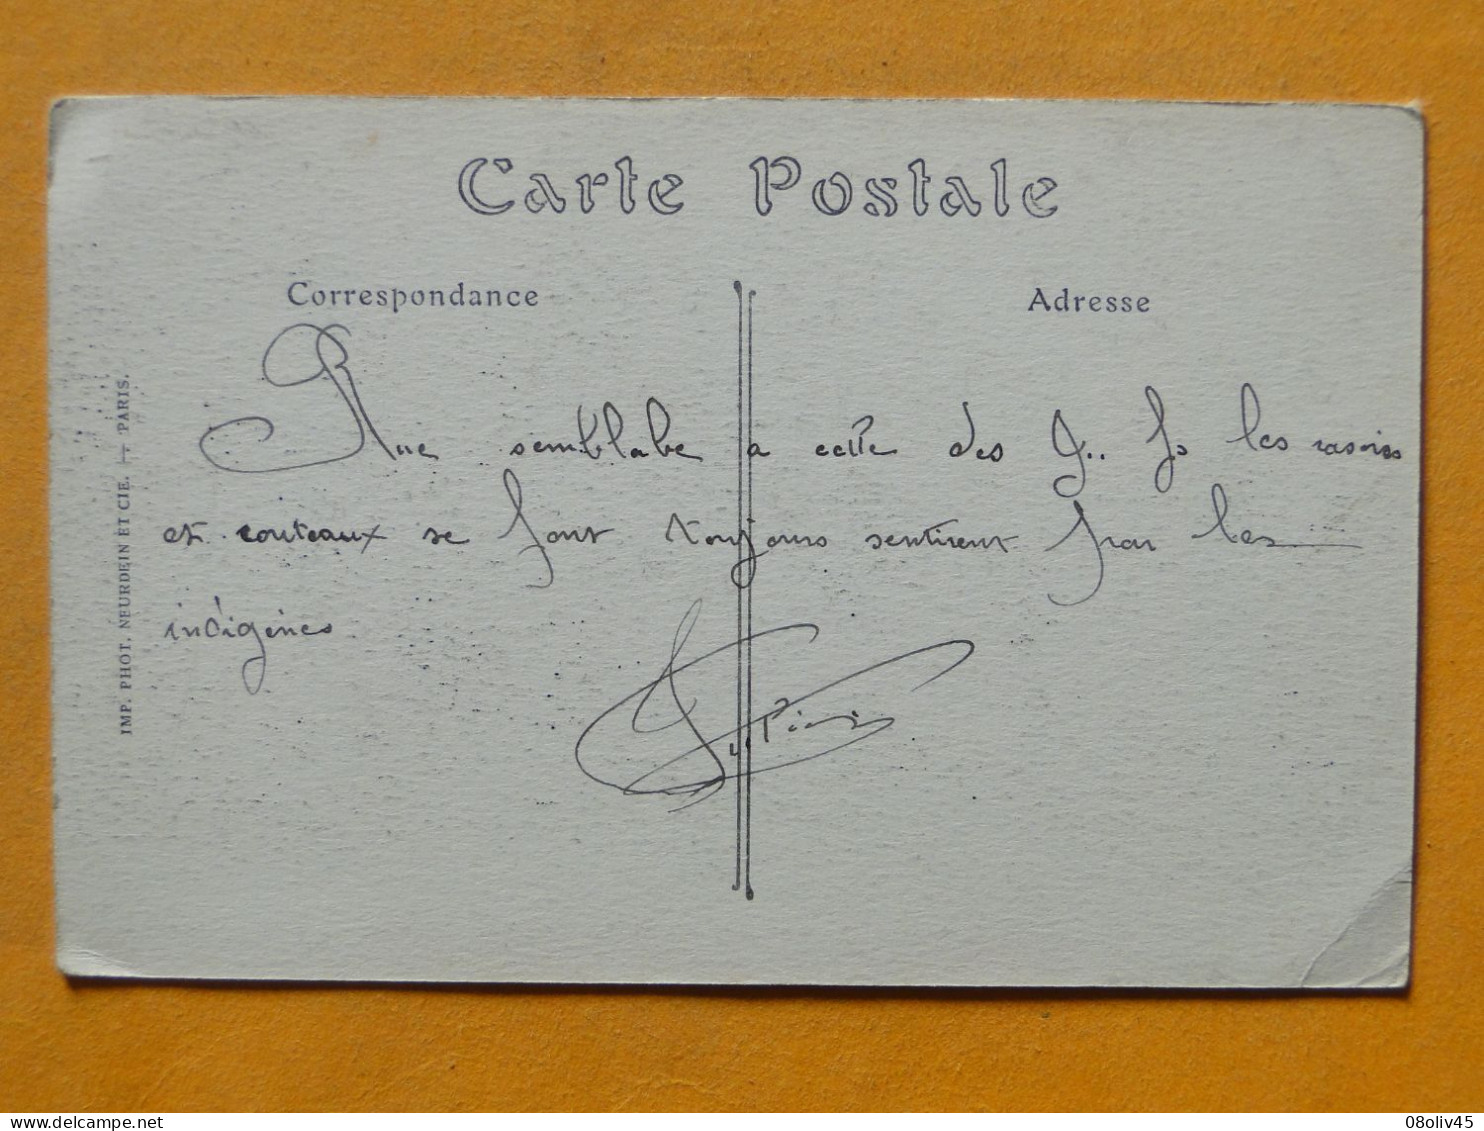 Carte Postale
Correspondance
Adresse
Rue semblabe a celle des J.. Fs les rasoirs
et couteaux se font toujours sentirent par les
indigènes
IMP. PHOT. NEURDEIN ET CIE. — PARIS.
08oliv45